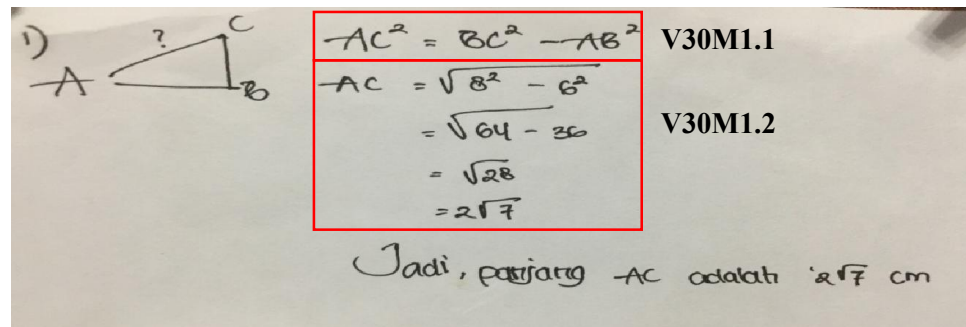 1)
?
C
A
B
AC² = BC² - AB² V30M1.1
AC = √8² - 6²
= √64 - 36 V30M1.2
= √28
= 2√7
Jadi, panjang AC adalah 2√7 cm